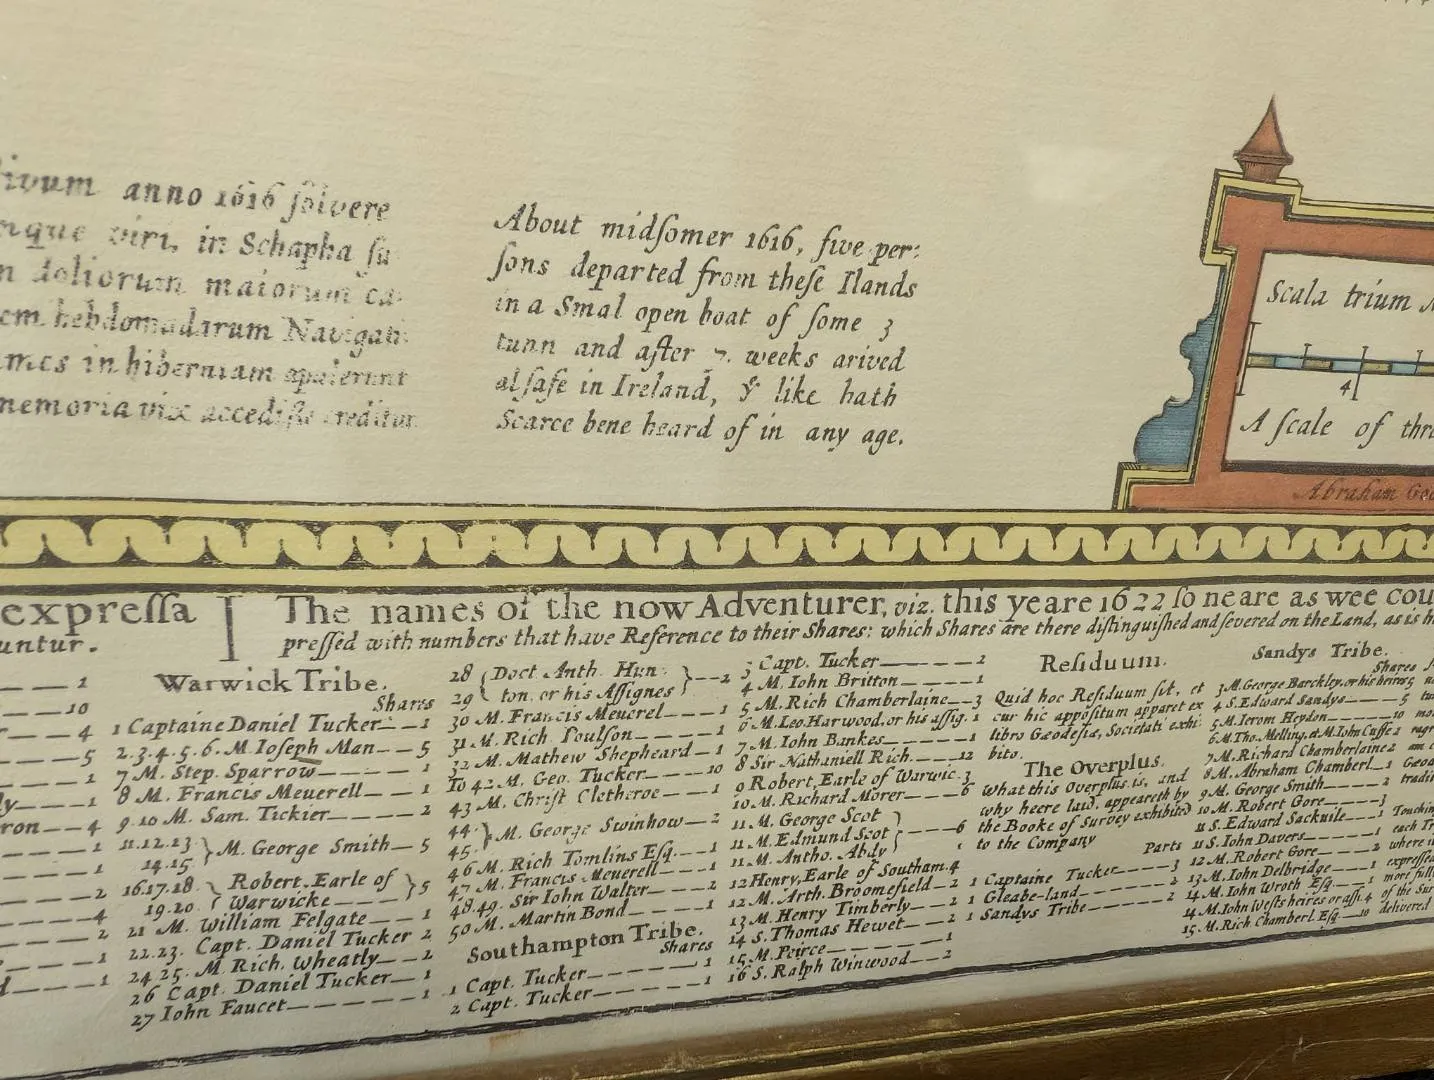 anno 1616 ſolvere
viri, in Schapha ſu
doliorum maiorum ca
hebdomadarum Navigati
in hiberniam apulerunt
memoria vix accediſſe creditur
About midſomer 1616, five per:
ſons departed from theſe Ilands
in a Smal open boat of ſome 3
tunn and after 7. weeks arived
al ſafe in Ireland, & like hath
Scarce bene heard of in any age.
Scala trium
4
A ſcale of
Abraham
expreſſa
untur.
The names of the now Adventurer, viz. this yeare 1622 ſo neare as wee cou
preſſed with numbers that have Reference to their Shares: which Shares are there diſtinguiſhed and ſevered on the Land, as is
1
10
4
5
1
1
4
1
1
2
4
2
1
1
Warwick Tribe.
Shares
1 Captaine Daniel Tucker 1
2.3.4.5.6. M. Ioſeph Man 5
7 M. Step. Sparrow 1
8 M. Francis Meuerell 1
9.10 M. Sam. Tickier 2
11.12.13
14.15 } M. George Smith 5
16.17.18 { Robert, Earle of
19.20 { Warwicke } 5
21 M. William Felgate 1
22.23. Capt. Daniel Tucker 2
24 25. M. Rich. Wheatly 2
26 Capt. Daniel Tucker 1
27 Iohn Faucet 1
28 { Doct. Anth. Hun:
29 { ton. or his Aſſignes } 2
30 M. Francis Meuerel 1
31 M. Rich. Poulſon 1
32 M. Mathew Shepheard 1
To 42 M. Geo. Tucker 10
43 M. Chriſt Cletheroe 1
44
45 } M. George Swinhow 2
46 M. Rich Tomlins Eſq. 1
47 M. Francis Meuerell 1
48.49. Sir Iohn Walter 2
50 M. Martin Bond 1
Southampton Tribe.
Shares
1 Capt. Tucker 1
2 Capt. Tucker 1
3 Capt. Tucker 2
4 M. Iohn Britton 1
5 M. Rich Chamberlaine 3
6 M. Leo. Harwood. or his aſſig. 1
7 M. Iohn Bankes 1
8 Sir Nathaniell Rich. 12
9 Robert, Earle of Warwic. 3
10 M. Richard Morer 6
11 M. George Scot
11 M. Edmund Scot
11 M. Antho. Abdy } 6
12 Henry, Earle of Southam. 4
12 M. Arth. Broomefield 2
13 M. Henry Timberly 2
14 S. Thomas Hewet 2
15 M. Peirce 1
16 S. Ralph Winwood 2
Reſiduum.
Quid hoc Reſiduum ſit, et
cur hic appoſitum apparet ex
libro Gæodeſiæ, Societati exhi:
bito.
The Overplus.
What this Overplus is, and
why heere laid, appeareth by
the Booke of Survey exhibited
to the Company
Parts
1 Captaine Tucker 3
1 Gleabe-land 2
1 Sandys Tribe 2
Sandys Tribe.
Shares
3 M. George Barckley. or his heires 5
4 S. Edward Sandys 5
5 M. Ierom Heydon 10
6 M. Tho. Melling, et M. Iohn Cuffe 2
7 M. Richard Chamberlaine 2
8 M. Abraham Chamberl. 1
9 M. George Smith 2
10 M. Robert Gore 3
11 S. Edward Sackuile 1
11 S. Iohn Davers 1
12 M. Robert Gore 2
13 M. Iohn Delbridge 1
14 M. Iohn Wroth Eſq. 1
14 M. Iohn Weſts heires or aſſi. 4
15 M. Rich Chamberl. Eſq. 10
tradi
Touching
each Tr
where i
expreſſed
more full
of the Sur
delivered